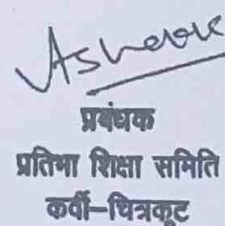 Ashok
प्रबंधक
प्रतिभा शिक्षा समिति
कर्वी–चित्रकूट